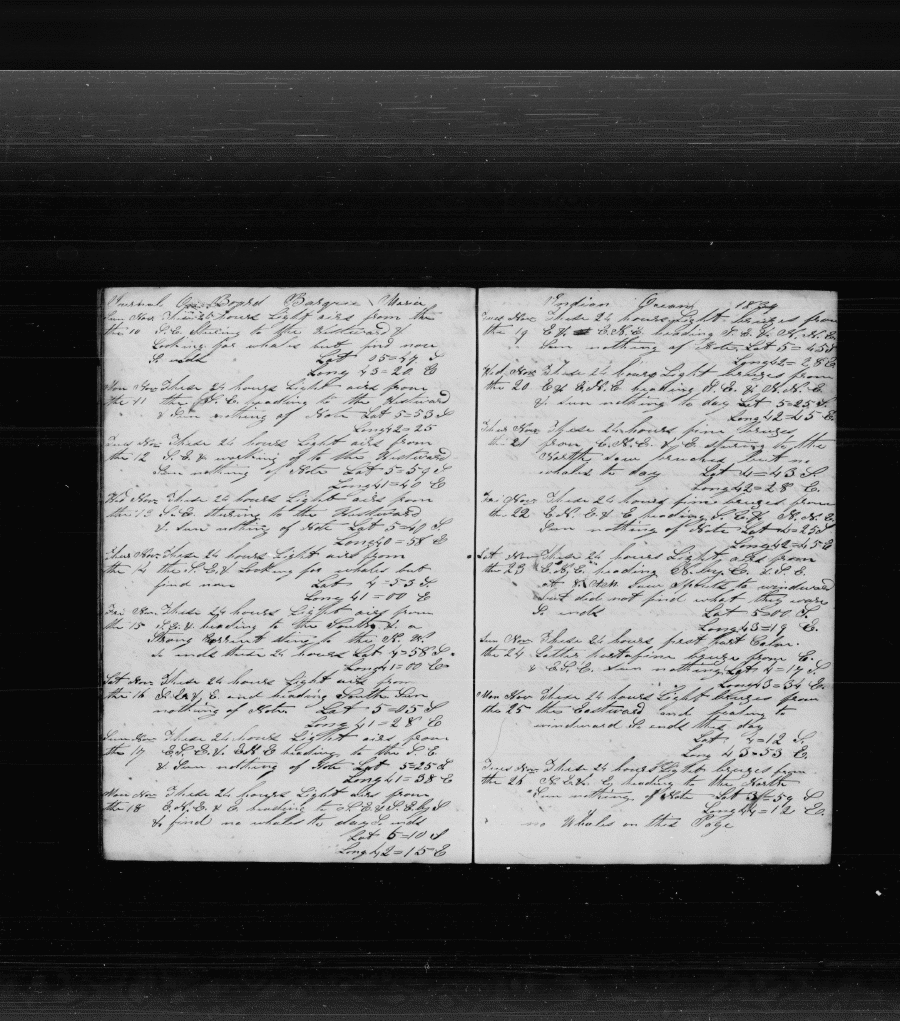 Journal On Board Barque Maria
Sun Nov These 24 hours Light airs from the
the 10 S. E. Stearing to the Westward &
Looking for whales but find none
So ends Lat 05=47 S
Long 43=20 E
Mon Nov These 24 hours Light airs from
the 11 the S. E. heading to the Westward
& Sun nothing of Note Lat 5=53 S
Long 42=25
Tues Nov These 24 hours Light airs from
the 12 S. E. & working of to the Westward
Sun nothing of Note Lat 5=59 S
Long 41=40 E
Wed Nov These 24 hours Light airs from
the 13 S. E. stering to the Westward
& Sun nothing of Note Lat 5=40 S
Long 40=58 E
Thur Nov These 24 hours Light airs from
the 14 the S. E. & Looking for whales but
find none Lat 4=53 S
Long 41=00 E
Fri Nov These 24 hours Light airs from
the 15 S. E. & heading to the South & a
Strong Current seting to the N. W.
So ends these 24 hours Lat 4=58 S.
Long 41=00 E
Sat Nov These 24 hours Light airs from
the 16 S. E. & E and heading South Sun
nothing of Note Lat 5=05 S
Long 41=28 E
Sun Nov These 24 hours Light airs from
the 17 E. S. E. & E N E heading to the S. E
& Sun nothing of Note Lat 5=25 S
Long 41=38 E
Mon Nov These 24 hours Light airs from
the 18 E. N. E & E. heading to S. E & S. E. by S
& find no whales to day So ends
Lat 5=10 S
Long 42=15 E
Indian Ocean 1839
Tues Nov These 24 hours Light breezes from
the 19 E & E. N. E heading N. E. & N. N. E.
Sun nothing of Note Lat 5=45 S
Long 42=28 E
Wed Nov These 24 hours Light breezes from
the 20 E & E N. E heading N. E. & N. N. E
& Sun nothing to day Lat 5=25 S
Long 42=45 E
Thur Nov These 24 hours fine breezes
the 21 from E. N. E. & E stering to the
North saw breaches but no
whales to day Lat 4=43 S
Long 42=28 E.
Fri Nov These 24 hours fine breezes from
the 22 E. N. E & E heading S. E & N. N. E
Sun nothing of Note Lat 4=25 S
Long 42=45 E
Sat Nov These 24 hours Light Airs from
the 23 E. N. E. heading N. by E. & S. E.
at Saw Spouts to windward
but did not find what they ware
So ends Lat 5=00 S.
Long 43=19 E.
Sun Nov These 24 hours first part Calm
the 24 Latter part fine breeze from E.
& E. S. E. Sun nothing Lat 4=17 S
Long 43=34 E.
Mon Nov These 24 hours Light breezes from
the 25 the Eastward and beating to
windward So ends this day
Lat 4=12 S.
Long 43=53 E.
Tues Nov These 24 hours Light breezes from
the 26 heading to the North
Sun nothing of Note Lat 3=59 S
Long 44=12 E.
no Whales on this Page